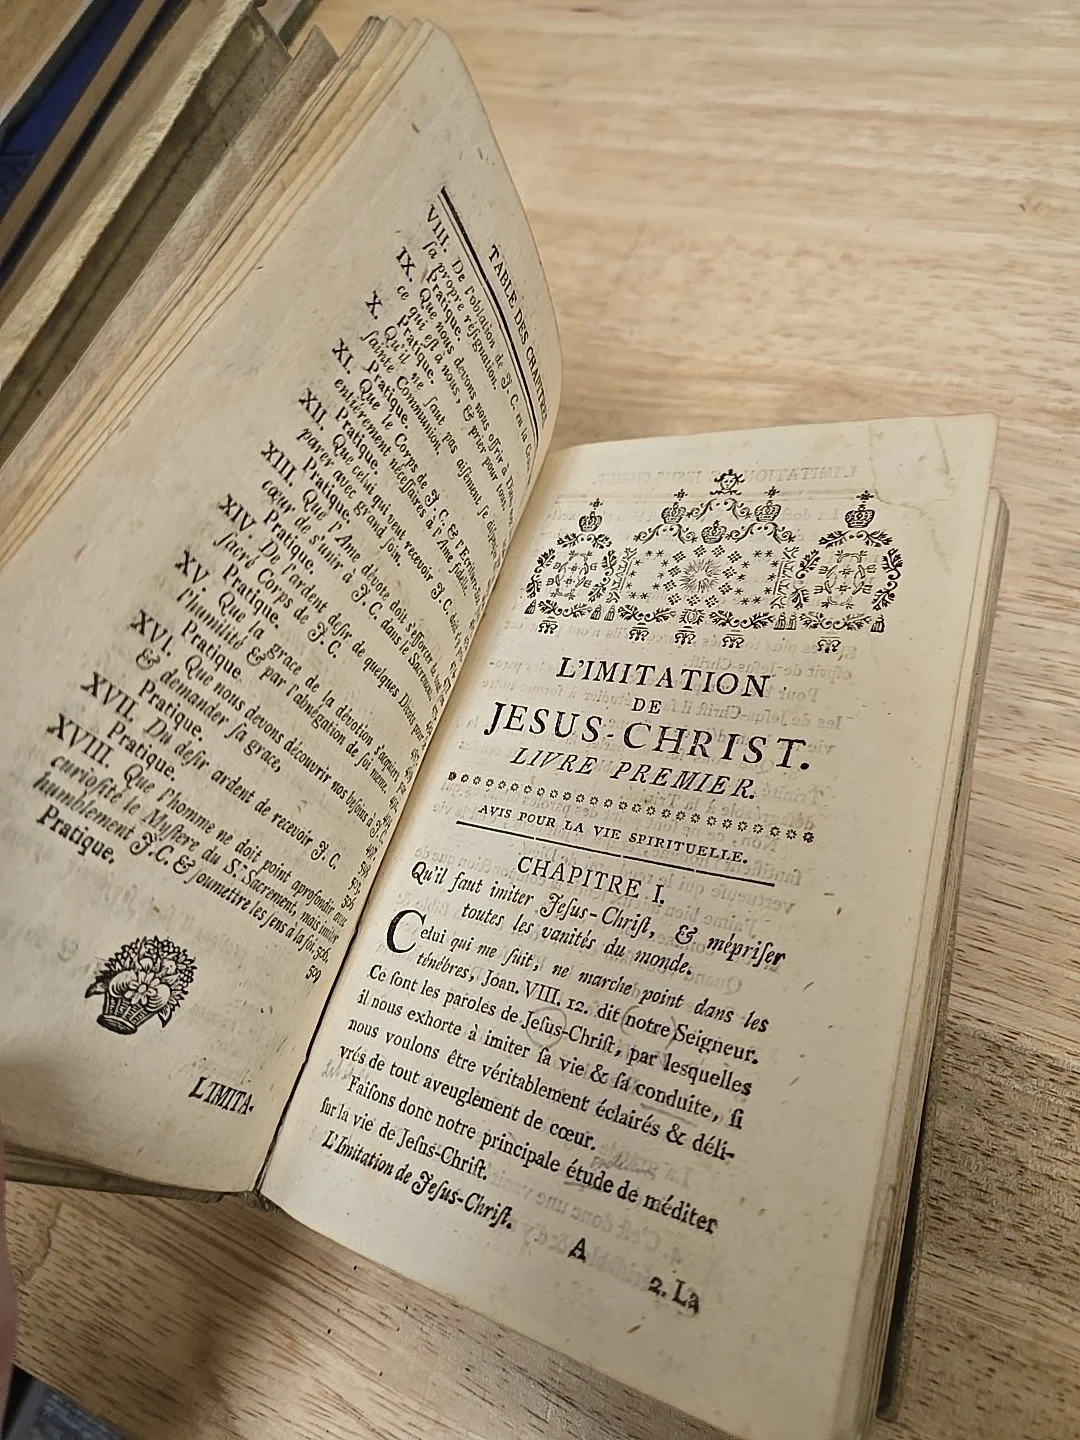 TABLE DES CHAPITRES
VIII. De l'oblation de J. C. en la Croix
ſa propre réſignation.
Pratique.
IX. Que nous devons nous offrir à Dieu
ce qui eſt à nous, & prier pour tous.
Pratique.
X. Qu'il ne faut pas aiſément ſe diſpenſer
ſainte Communion.
Pratique.
XI. Que le Corps de J. C. & l'Ecriture
entiérement néceſſaires à l'Ame fidelle.
Pratique.
XII. Que celui qui veut recevoir J. C. doit
parer avec grand ſoin.
Pratique.
XIII. Que l'Ame dévote doit s'efforcer
cœur de s'unir à J. C. dans le Sacrement.
Pratique.
XIV. De l'ardent deſir de quelques Dévots pour
ſacré Corps de J. C.
Pratique.
XV. Que la grace de la dévotion s'acquiert
l'humilité & par l'abnégation de ſoi même.
Pratique.
XVI. Que nous devons découvrir nos beſoins à J. C.
& demander ſa grace,
Pratique.
XVII. Du deſir ardent de recevoir J. C.
Pratique.
XVIII. Que l'homme ne doit point aprofondir avec
curioſité le Myſtere du St. Sacrement, mais imiter
humblement J. C. & ſoumettre ſes ſens à la foi. 506.
Pratique. 509
L'IMITA-
L'IMITATION
DE
JESUS-CHRIST.
LIVRE PREMIER.
AVIS POUR LA VIE SPIRITUELLE.
CHAPITRE I.
Qu'il faut imiter Jeſus-Chriſt, & mépriſer
toutes les vanités du monde.
Celui qui me ſuit, ne marche point dans les
ténébres, Joan. VIII. 12. dit notre Seigneur.
Ce ſont les paroles de Jeſus-Chriſt, par leſquelles
il nous exhorte à imiter ſa vie & ſa conduite, ſi
nous voulons être véritablement éclairés & déli-
vrés de tout aveuglement de cœur.
Faiſons donc notre principale étude de méditer
ſur la vie de Jeſus-Chriſt.
L'Imitation de Jeſus-Chriſt.
A
2. La